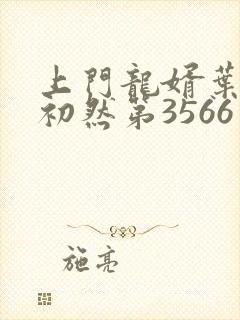 上門龍婿葉
初然第3566
施亮